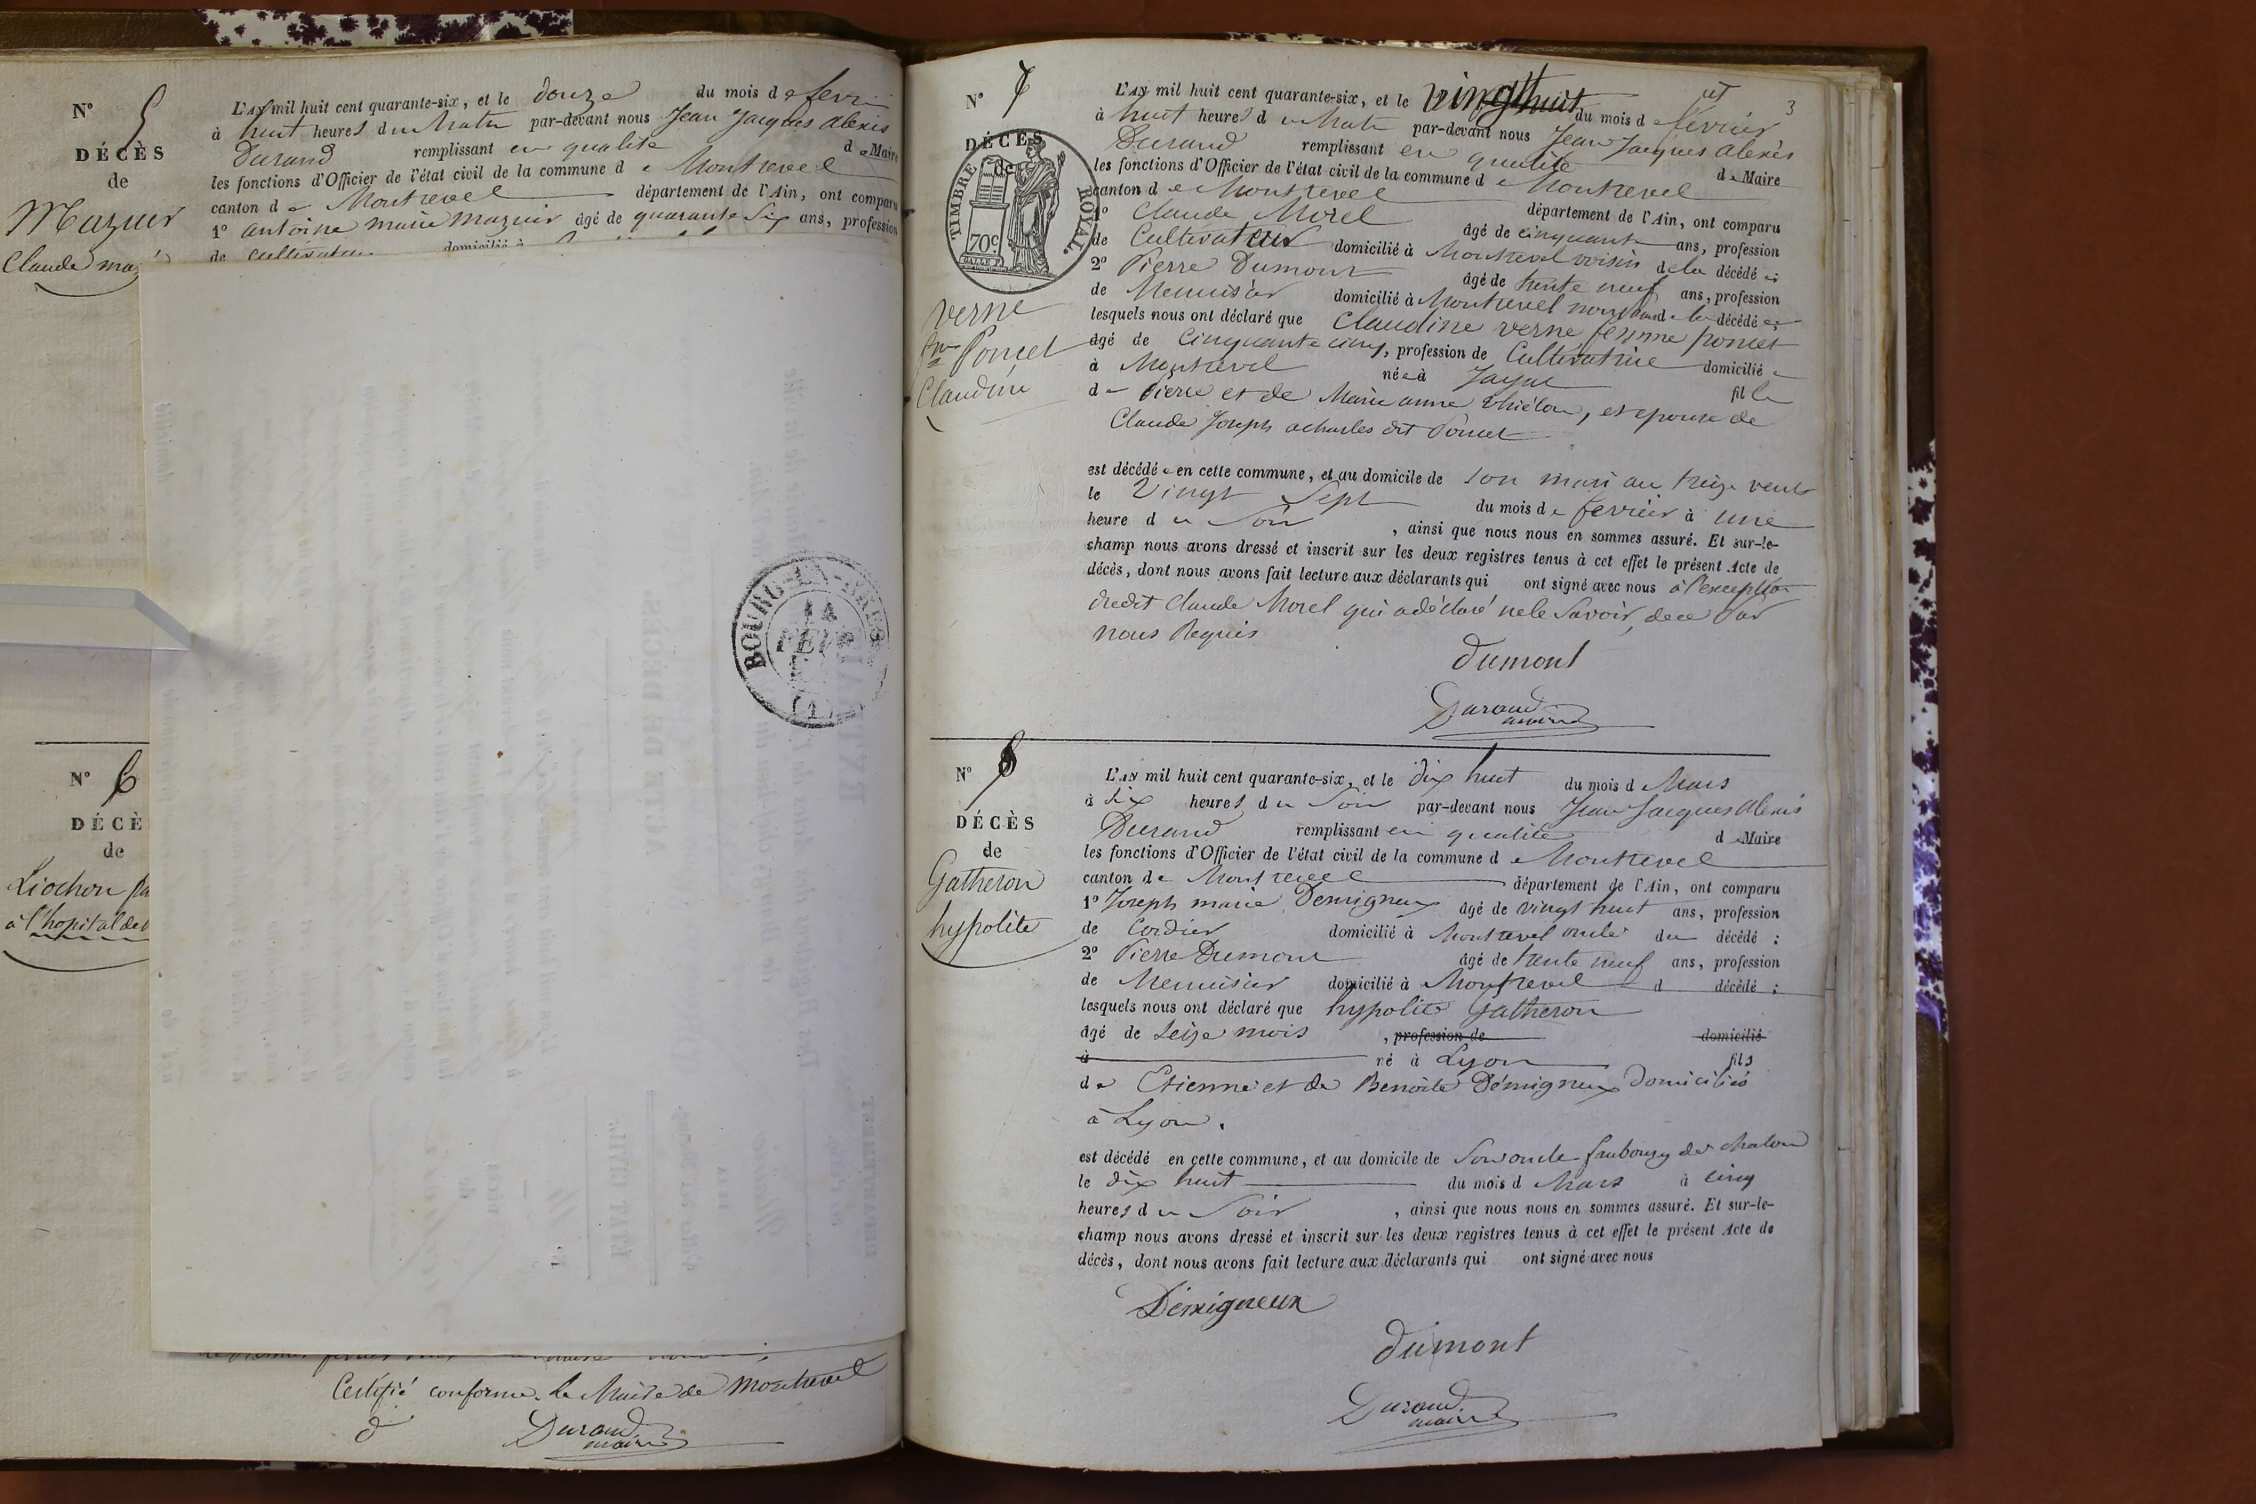 N° 5
DÉCÈS
de
Mazuir
Claude
L'AN mil huit cent quarante-six, et le douze du mois de fevri
à huit heures du Matin par-devant nous Jean Jacques Alexis
Durand remplissant en qualité de Maire
les fonctions d'Officier de l'état civil de la commune de Montrevel
canton de Montrevel département de l'Ain, ont comparu
1° antoine marie Mazuir âgé de quarante Six ans, profession
de cultivateur domicilié à
N° 6
DÉCÈ
de
Liochon
à l'hopital de
Certifié conforme. Le Maire de Montrevel
Durand
maire
3
N° 7
DÉCÈS
de
TIMBRE ROYAL.
70c
verne
fme Poncet
Claudine
L'AN mil huit cent quarante-six, et le vingt huit du mois de février
à huit heures du Matin par-devant nous Jean Jacques Alexis
Durand remplissant en qualité de Maire
les fonctions d'Officier de l'état civil de la commune de Montrevel
canton de Montrevel département de l'Ain, ont comparu
1° Claude Morel âgé de cinquante ans, profession
de Cultivateur domicilié à Montrevel voisin de la décédée;
2° Pierre Dumont âgé de trente neuf ans, profession
de Menuisier domicilié à Montrevel non parent de la décédée;
lesquels nous ont déclaré que Claudine verne femme poncet
âgé de Cinquante cinq, profession de Cultivatrice domiciliée
à Montrevel née à Jayat fille
de Pierre et de Marie anne, et epouse de
Claude Joseph acharles dit Poncet
est décédée en cette commune, et au domicile de son mari au treize vents
le Vingt Sept du mois de fevrier à une
heure du Soir, ainsi que nous nous en sommes assuré. Et sur-le-
champ nous avons dressé et inscrit sur les deux registres tenus à cet effet le présent Acte de
décès, dont nous avons fait lecture aux déclarants qui ont signé avec nous à l'exception
dudit Claude Morel qui a déclaré ne le Savoir, de ce Par
nous Requis
Dumont
Durand
maire
N° 8
DÉCÈS
de
Gatheron
hypolite
L'AN mil huit cent quarante-six, et le dix huit du mois d Mars
à Six heures du Soir par-devant nous Jean Jacques Alexis
Durand remplissant en qualité de Maire
les fonctions d'Officier de l'état civil de la commune de Montrevel
canton de Montrevel département de l'Ain, ont comparu
1° Joseph marie Demigneux âgé de vingt huit ans, profession
de Cordier domicilié à Montrevel oncle du décédé;
2° Pierre Dumont âgé de trente neuf ans, profession
de Menuisier domicilié à Montrevel d décédé;
lesquels nous ont déclaré que hypolite Gatheron
âgé de Seize mois, profession de domicilié
à né à Lyon fils
de Etienne et de Benoite Démigneux domiciliés
à Lyon.
est décédé en cette commune, et au domicile de Son oncle faubourg de chalon
le dix huit du mois d Mars à cinq
heures du Soir, ainsi que nous nous en sommes assuré. Et sur-le-
champ nous avons dressé et inscrit sur les deux registres tenus à cet effet le présent Acte de
décès, dont nous avons fait lecture aux déclarants qui ont signé avec nous
Démigneux
Dumont
Durand
maire